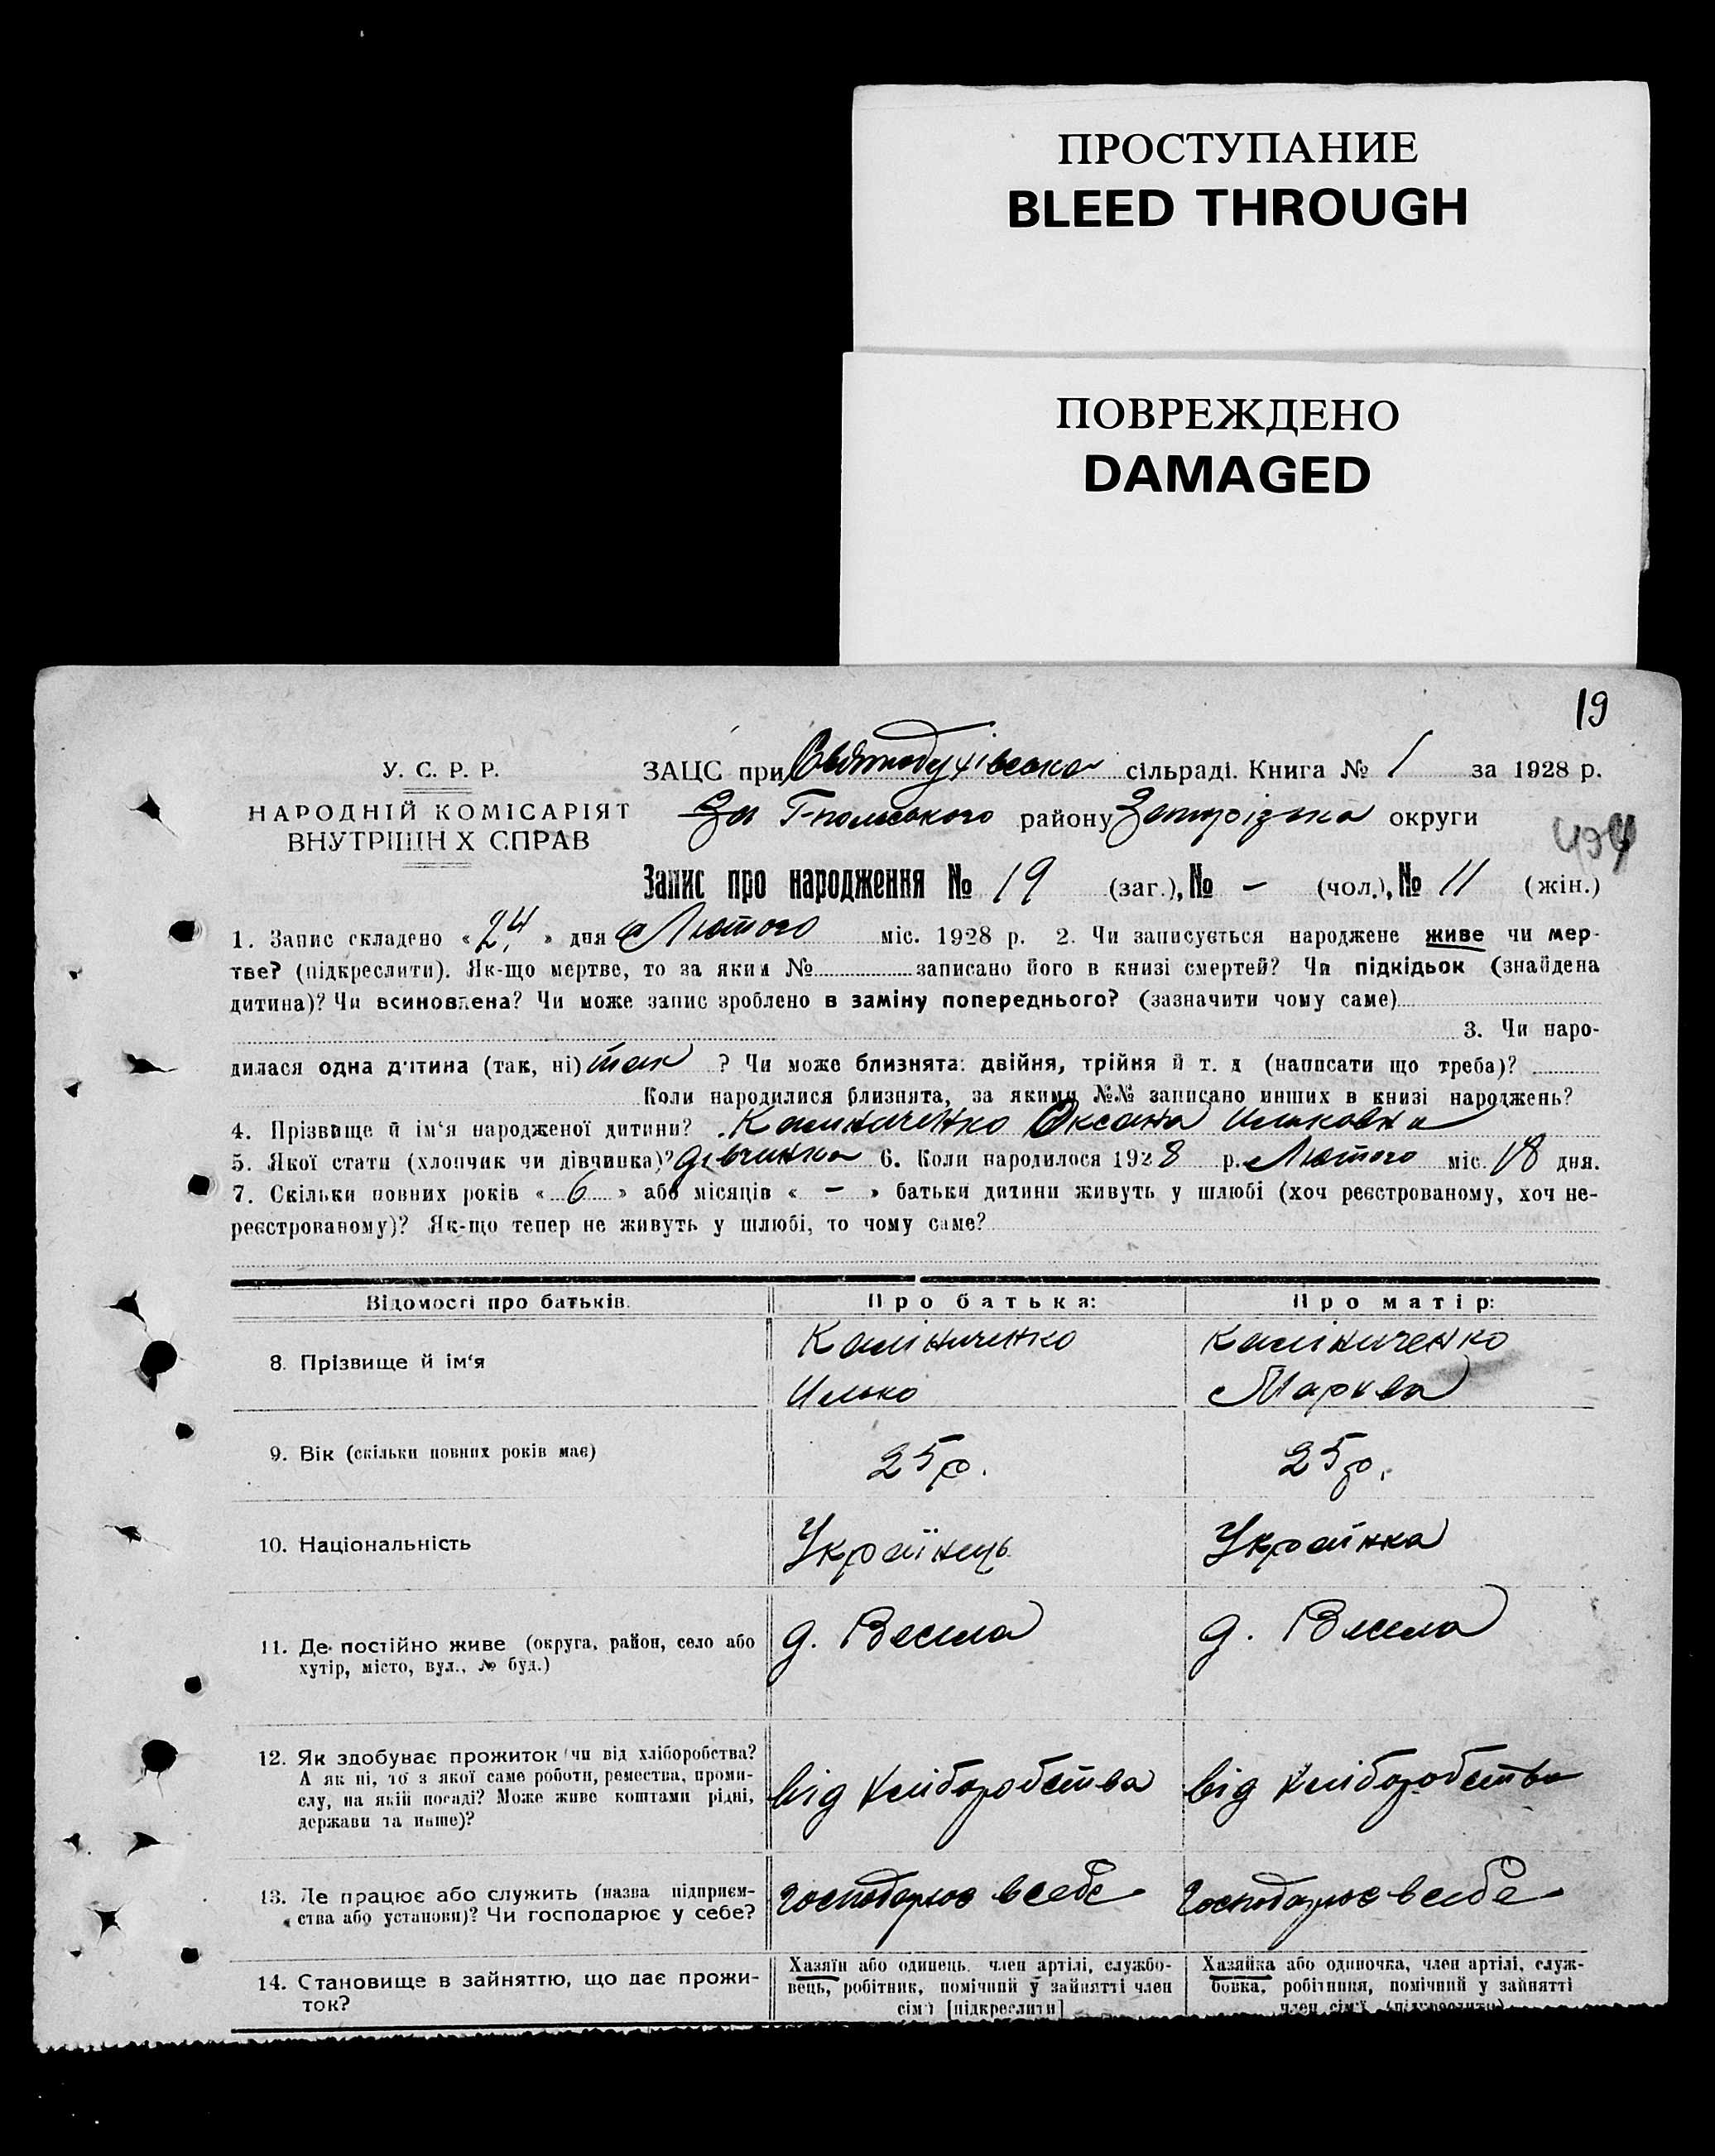 ПРОСТУПАНИЕ
BLEED THROUGH
ПОВРЕЖДЕНО
DAMAGED
19
У. С. Р. Р.
НАРОДНІЙ КОМІСАРІЯТ
ВНУТРІШН Х СПРАВ
ЗАЦС при Святодухівська сільраді. Книга № 1 за 1928 р.
Г-польського району Запорізька округи
494
Запис про народження № 19 (заг.), № – (чол.), № 11 (жін.)
1. Запис складено « 24 » дня Лютого міс. 1928 р. 2. Чи записується народжене живе чи мер-
тве? (підкреслити). Як-що мертве, то за яким № записано його в книзі смертей? Чи підкідьок (знайдена
дитина)? Чи всиновлена? Чи може запис зроблено в заміну попереднього? (зазначити чому саме)
3. Чи наро-
дилася одна дитина (так, ні) так ? Чи може близнята: двійня, трійня й т. д (написати що треба)?
Коли народилися близнята, за якими №№ записано инших в книзі народжень?
4. Прізвище й ім‘я народженої дитини? Калиниченко Оксана Ильковна
5. Якої стати (хлопчик чи дівчинка)? дівчинка 6. Коли народилося 1928 р. Лютого міс. 18 дня.
7. Скільки повних років « 6 » або місяців « – » батьки дитини живуть у шлюбі (хоч реєстрованому, хоч не-
реєстрованому)? Як-що тепер не живуть у шлюбі, то чому саме?
Відомості про батьків. Про батька: Про матір:
8. Прізвище й ім‘я
Калініченко Калініченко
Илько Марква
9. Вік (скільки повних років має) 25 р. 25 р.
10. Національність Українець Українка
11. Де постійно живе (округа, район, село або
хутір, місто, вул., № буд.)
д. Весела д. Весела
12. Як здобуває прожиток чи від хліборобства?
А як ні, то з якої саме роботи, ремества, проми-
слу, на якій посаді? Може живе коштами рідні,
держави та инше)?
від хліборобства від хліборобства
13. Де працює або служить (назва підприєм-
ства або установи)? Чи господарює у себе?
господарює в себе господарює в себе
14. Становище в зайняттю, що дає прожи-
ток?
Хазяїн або одинець. член артілі, службо-
вець, робітник, помічний у зайнятті член
сім‘ї [підкреслити]
Хазяйка або одиночка, член артілі, служ-
бовка, робітниця, помічний у зайнятті
член сім‘ї (підкреслити)